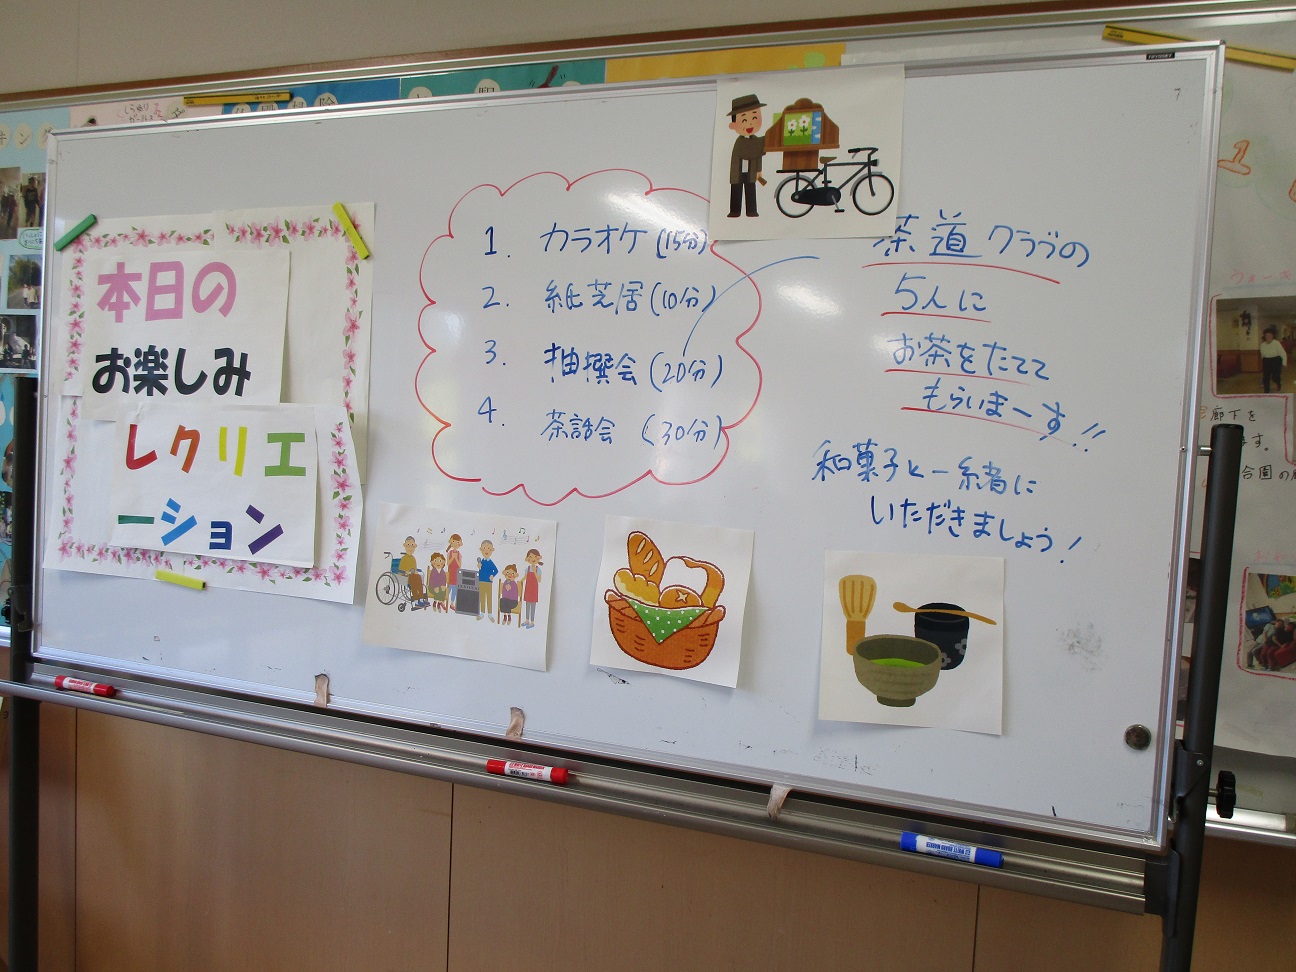 本日の
お楽しみ
レクリエ
ーション
1. カラオケ (15分)
2. 紙芝居 (10分)
3. 抽撰会 (20分)
4. 茶話会 (30分)
茶道クラブの
5人に
お茶をたてて
もらいまーす!!
和菓子と一緒に
いただきましょう!
廊下を